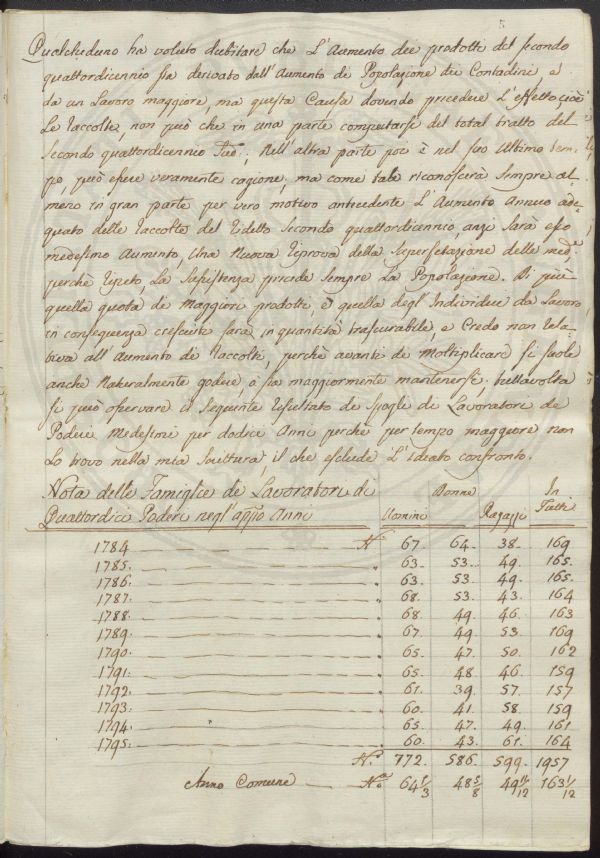 5
Qualcheduno ha voluto dubitare che L'Aumento dei prodotti del secondo
quattordicennio sia derivato dall'Aumento di Popolazione dei Contadini, e
da un Lavoro maggiore, ma questa Causa dovendo precedere L'effetto cioè
Le raccolte, non può che in una parte computarsi del total tratto del
Secondo quattordicennio Sud:, Nell'altra parte poi è nel suo Ultimo tem-
po, può essere veramente cagione, ma come tale riconoscerà Sempre al-
meno in gran parte per vero motivo antecedente L'Aumento Annuo ade-
quato delle raccolte del ridetto Secondo quattordicennio, anzi Sarà esso
medesimo Aumento, Una Nuova riprova della Superfetazione delle med:
perchè ripeto, La Sussistenza precede Sempre La Popolazione. Di più
quella quota di Maggiori prodotti, e quella degl'Individui da Lavoro
in conseguenza cresciuti sarà in quantità trascurabile, e Credo non rela-
tiva all'Aumento de Raccolti, perchè avanti di Moltiplicare si suole
anche Naturalmente godere, o sia maggiormente mantenersi; tuttavolta
si può osservare il Seguente resultato di Spogli di Lavoratori de
Poderi Medesimi per dodici Anni perchè per tempo maggiore non
Lo trovo nella mia Scrittura, il che esclude L'ideato confronto.
Nota delle Famiglie de Lavoratori di
Quattordici Poderi negl'appo Anni Uomini Donne Ragazzi In Tutti
1784 N.° 67. 64. 38. 169
1785. 63. 53. 49. 165.
1786. 63. 53. 49. 165.
1787. 68. 53. 43. 164
1788. 68. 49. 46. 163
1789. 67. 49. 53. 169
1790. 65. 47. 50. 162
1791. 65. 48. 46. 159
1792. 61. 39. 57. 157
1793. 60. 41. 58. 159
1794. 65. 47. 49. 161
1795. 60. 43. 61. 164
N.° 772. 586. 599. 1957
Anno Comune N.° 64 1/3 48 5/8 49 11/12 163 1/12